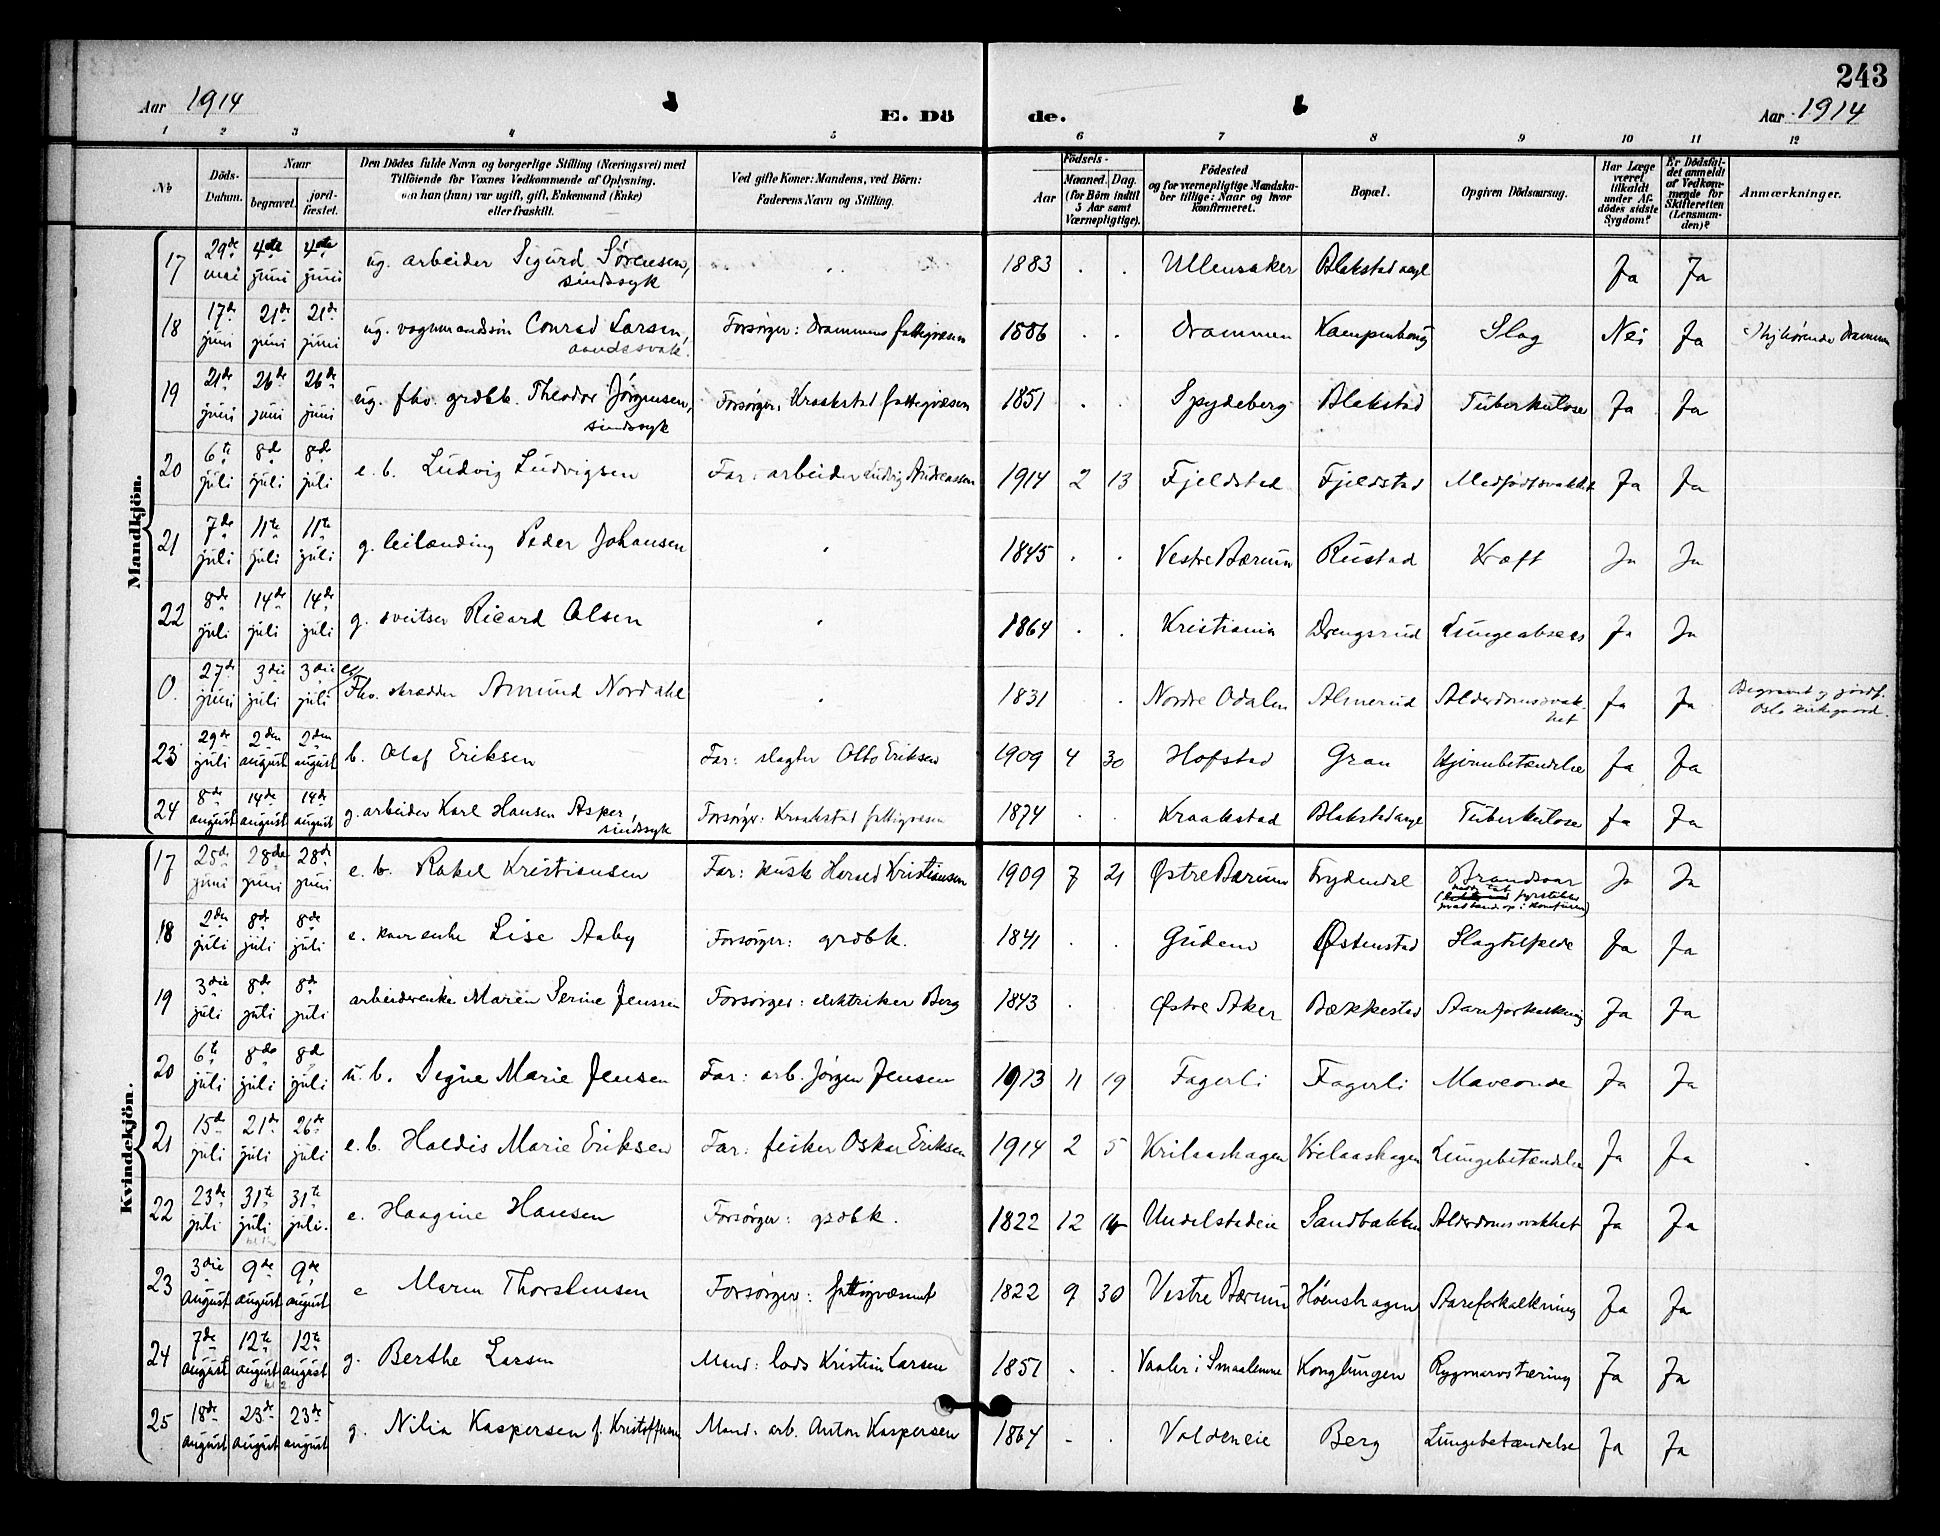 243
Aar 1914
E. Dö de.
Aar 1914
1 2 3 4 5 6 7 8 9 10 11 12
No
Döds-Datum.
Naar
begravet.
jord-fæstet.
Den Dödes fulde Navn og borgerlige Stilling (Næringsvei) med
Tilföiende for Voxnes Vedkommende af Oplysning,
om han (hun) var ugift, gift, Enkemand (Enke)
eller fraskilt.
Ved gifte Koner: Mandens, ved Börn:
Faderens Navn og Stilling.
Födsels-
Aar
Maaned. Dag.
(for Börn indtil
5 Aar samt
Værnepligtige).
Födested
og for værnepligtige Mandska-
ber tillige: Naar og hvor
konfirmeret.
Bopæl.
Opgiven Dödsaarsag.
Har Læge
været
tilkaldt
under Af-
dödes sidste
Sygdom?
Er Dödsfal-
det anmeldt
af Vedkom-
mende for
Skifteretten
(Lensman-
den)?
Anmærkninger.
Mandkjön.
17 29de mai 4de juni 4de juni ug. arbeider Sigurd Sørensen, sindssyk 1883 . . Ullensaker Blakstad asyl Ja Ja
18 17de juni 21de juni 21de juni ug. vognmandssøn Conrad Larsen, aandssvak. Forsørger: Drammens fattigvæsen 1886 . . Drammen Kampenhaug Slag Nei Ja Hjemhørende Drammen
19 21de juni 26de juni 26de juni ug. fhv. grdbr. Theodor Jørgensen, sindssyk Forsørger: Kraakstad fattigvæsen 1851 . . Spydeberg Blakstad Tuberkulose Ja Ja
20 6te juli 8de juli 8de juli e. b. Ludvig Ludvigsen Far: arbeider Ludvig Andreassen 1914 2 13 Fjeldstad Fjeldstad Medfødt svakhet Ja Ja
21 7de juli 11te juli 11te juli g. leilænding Peder Johansen 1845 . . Vestre Bærum Rustad Kræft Ja Ja
22 8de juli 14de juli 14de juli g. sveitser Ricard Olsen 1864 . . Kristiania Drengsrud Lungeabsess Ja Ja
0. 27de juni 3die juli 3die juli Fhv. skrædder Amund Nordahl 1831 . Nordre Odalen Almerud Alderdomssvakhet Ja Ja Begravet og jordf. Oslo kirkegaard.
23 29de juli 2den august 2den august b. Olaf Eriksen Far: slagter Otto Eriksen 1909 4 30 Hofstad Gran Hjernebetændelse Ja Ja
24 8de august 14de august 14de august g. arbeider Karl Hansen Asper, sindssyk Forsørger: Kraakstad fattigvæsen 1874 . . Kraakstad Blakstad asyl Tuberkulose Ja Ja
Kvindekjön.
17 25de juni 28de juni 28de juni e. b. Rakel Kristiansen Far: kusk Harald Kristiansen 1909 7 21 Østre Bærum Frydendal Brandsaar Ja Ja
18 2den juli 8de juli 8de juli e. Lise Aaby Forsørger: grdbk. 1841 . . Gudem Østenstad Slagtilfælde Ja Ja
19 3die juli 8de juli 8de juli arbeiderenke Maren Serine Jenssen Forsørger: elektriker Berg 1843 . . Østre Aker Bækkestad Aareforkalkning Ja Ja
20 6te juli 8de juli 8de juli u. b. Signe Marie Jensen Far: arb. Jørgen Jensen 1913 11 19 Fagerli Fagerli Maveonde Ja Ja
21 15de juli 21de juli 26de juli e. b. Haldis Marie Eriksen Far: fisker Oskar Eriksen 1914 2 5 Krilaashagen Krilaashagen Lungebetændelse Ja Ja
22 23de juli 31te juli 31te juli. e. Haagine Hansen Forsørger: grdbk. 1822 12 Undelstadeie Sandbakken Alderdomssvakhet Ja Ja
23 3die august 9de august 9de august e Maren Thorstensen Forsørger: fattigvæsnet 1822 9 30 Vestre Bærum Høenshagen Aareforkalkning Ja Ja
24 7de august 12te august 12te august g. Berthe Larsen Mand: lods Kristian Larsen 1851 . . Vaaler i Smaalenene Konglungen Rygmarvstæring Ja Ja
25 18de august 23de august 23de august g. Nilia Kaspersen f. Kristoffersen Mand: arb. Anton Kaspersen 1864 - . Valdeneie Berg Lungebetændelse Ja Ja